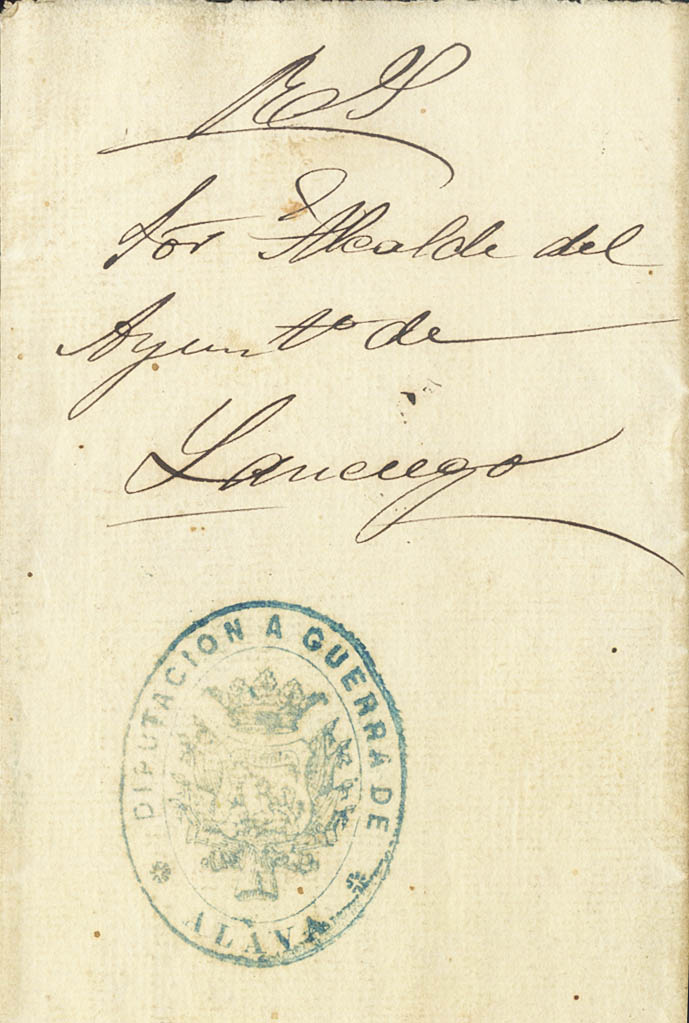 Sór Alcalde del
Ayunto de
Lanciego
DIPUTACION A GUERRA DE
ALAVA